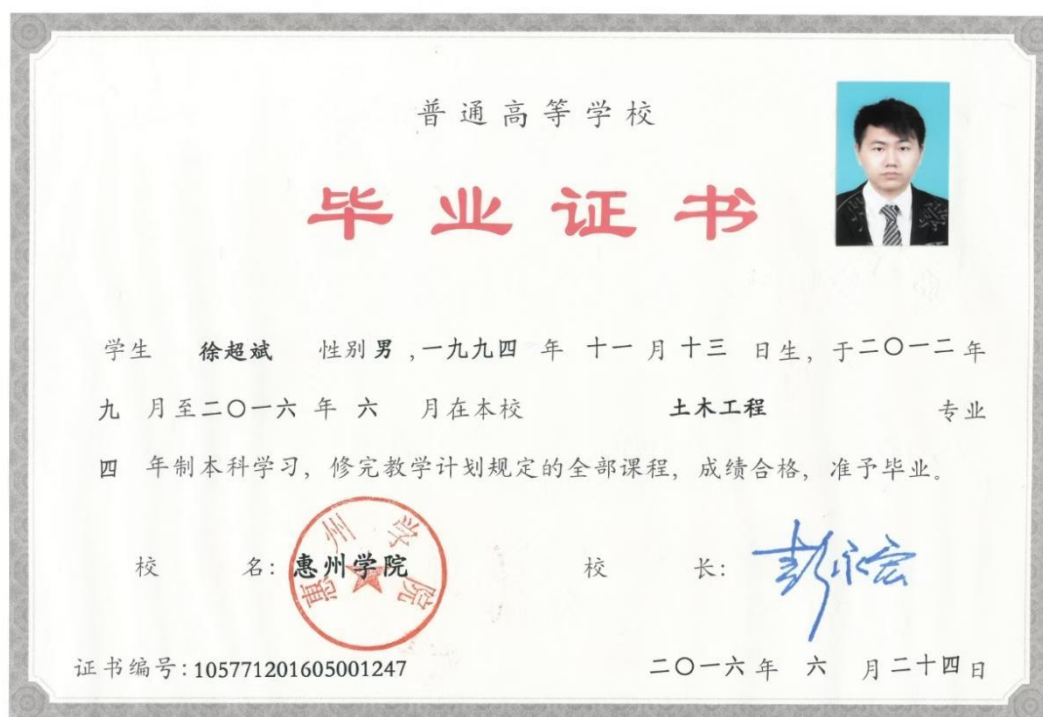 普通高等学校
毕业证书
学生 徐超斌 性别男,一九九四 年 十一 月十三 日生, 于二〇一二年
九 月至二〇一六 年 六 月在本校 土木工程 专业
四 年制本科学习, 修完教学计划规定的全部课程, 成绩合格, 准予毕业。
校 名: 惠州学院 校 长: 彭永宏
惠州学院
证书编号: 105771201605001247 二〇一六年 六 月二十四日